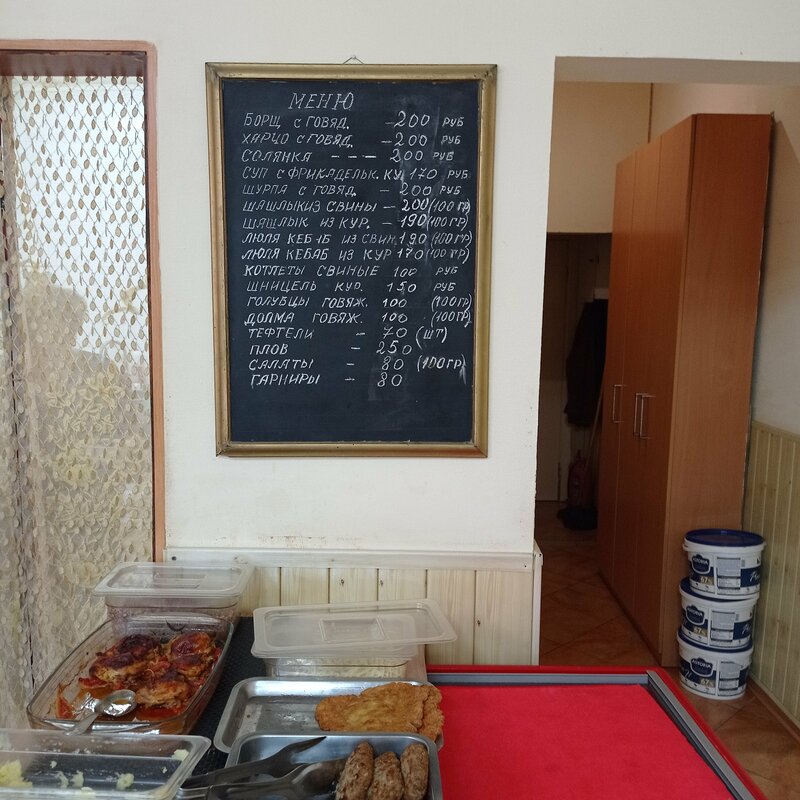 МЕНЮ
БОРЩ С ГОВЯД. - 200 РУБ
ХАРЧО С ГОВЯД. - 200 РУБ
СОЛЯНКА - - - 200 РУБ
СУП С ФРИКАДЕЛЬК. КУ 170 РУБ
ШУРПА С ГОВЯД. - 200 РУБ
ШАШЛЫК ИЗ СВИНЫ - 200 (100 ГР)
ШАШЛЫК ИЗ КУР. - 190 (100 ГР)
ЛЮЛЯ КЕБАБ ИЗ СВИН. 190 (100 ГР)
ЛЮЛЯ КЕБАБ ИЗ КУР 170 (100 ГР)
КОТЛЕТЫ СВИНЫЕ 100 РУБ
ШНИЦЕЛЬ КУР. 150 РУБ
ГОЛУБЦЫ ГОВЯЖ. 100 (100 ГР)
ДОЛМА ГОВЯЖ. 100 (100 ГР)
ТЕФТЕЛИ - 70 (ШТ)
ПЛОВ - 250
САЛАТЫ - 80 (100 ГР)
ГАРНИРЫ - 80
ASTORIA
67%
ASTORIA
67%
ASTORIA
67%